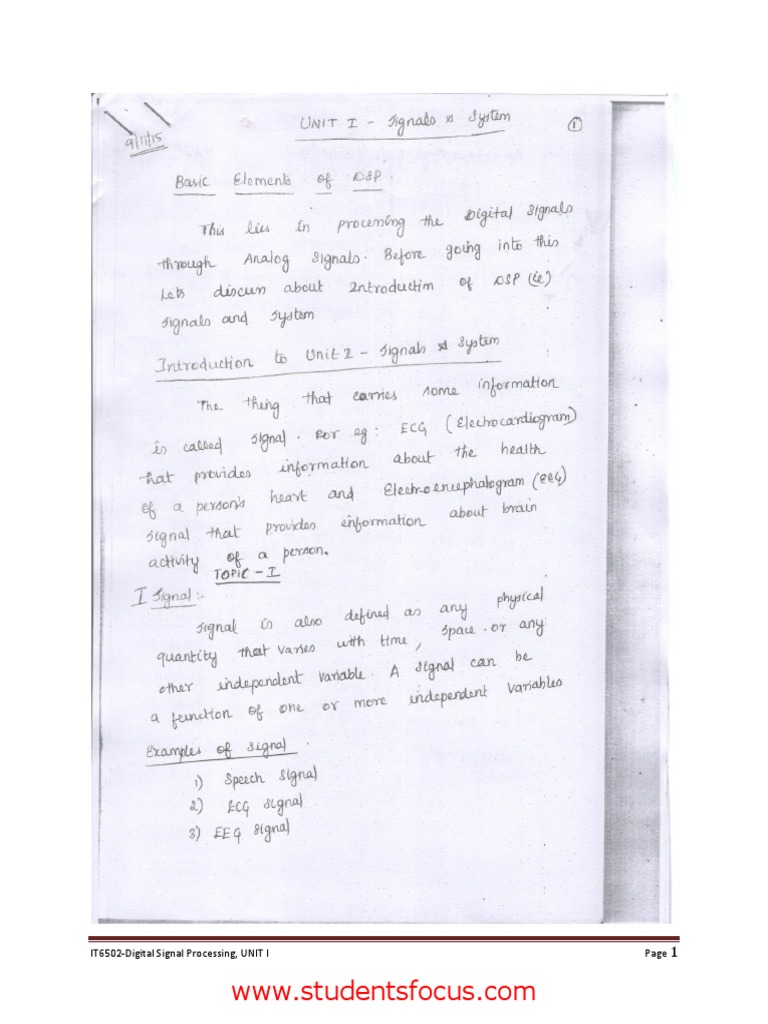 UNIT I - Signals & System
1
9/11/15
Basic Elements of DSP.
This lies in processing the Digital Signals
through Analog Signals. Before going into this
Lets discuss about Introduction of DSP (ie)
Signals and System
Introduction to Unit I - Signals & System
The thing that carries some information
is called Signal. For eg: ECG (Electrocardiogram)
that provides information about the health
of a person's heart and Electroencephalogram (EEG)
signal that provides information about brain
activity of a person.
TOPIC - I
I Signal :-
Signal is also defined as any physical
quantity that varies with time, space or any
other independent variable. A signal can be
a function of one or more independent variables
Examples of Signal.
1) Speech Signal
2) ECG Signal
3) EEG Signal
IT6502-Digital Signal Processing, UNIT I Page 1
www.studentsfocus.com